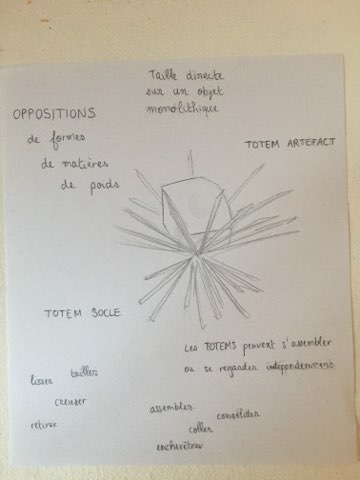 Taille directe
sur un objet
monolithique
OPPOSITIONS
de formes
de matières
de poids
TOTEM ARTEFACT
TOTEM SOCLE
Les TOTEMS peuvent s'assembler
ou se regarder indépendamment
lisser tailler
creuser
retirer
assembler
consolider
coller
enchevêtrer